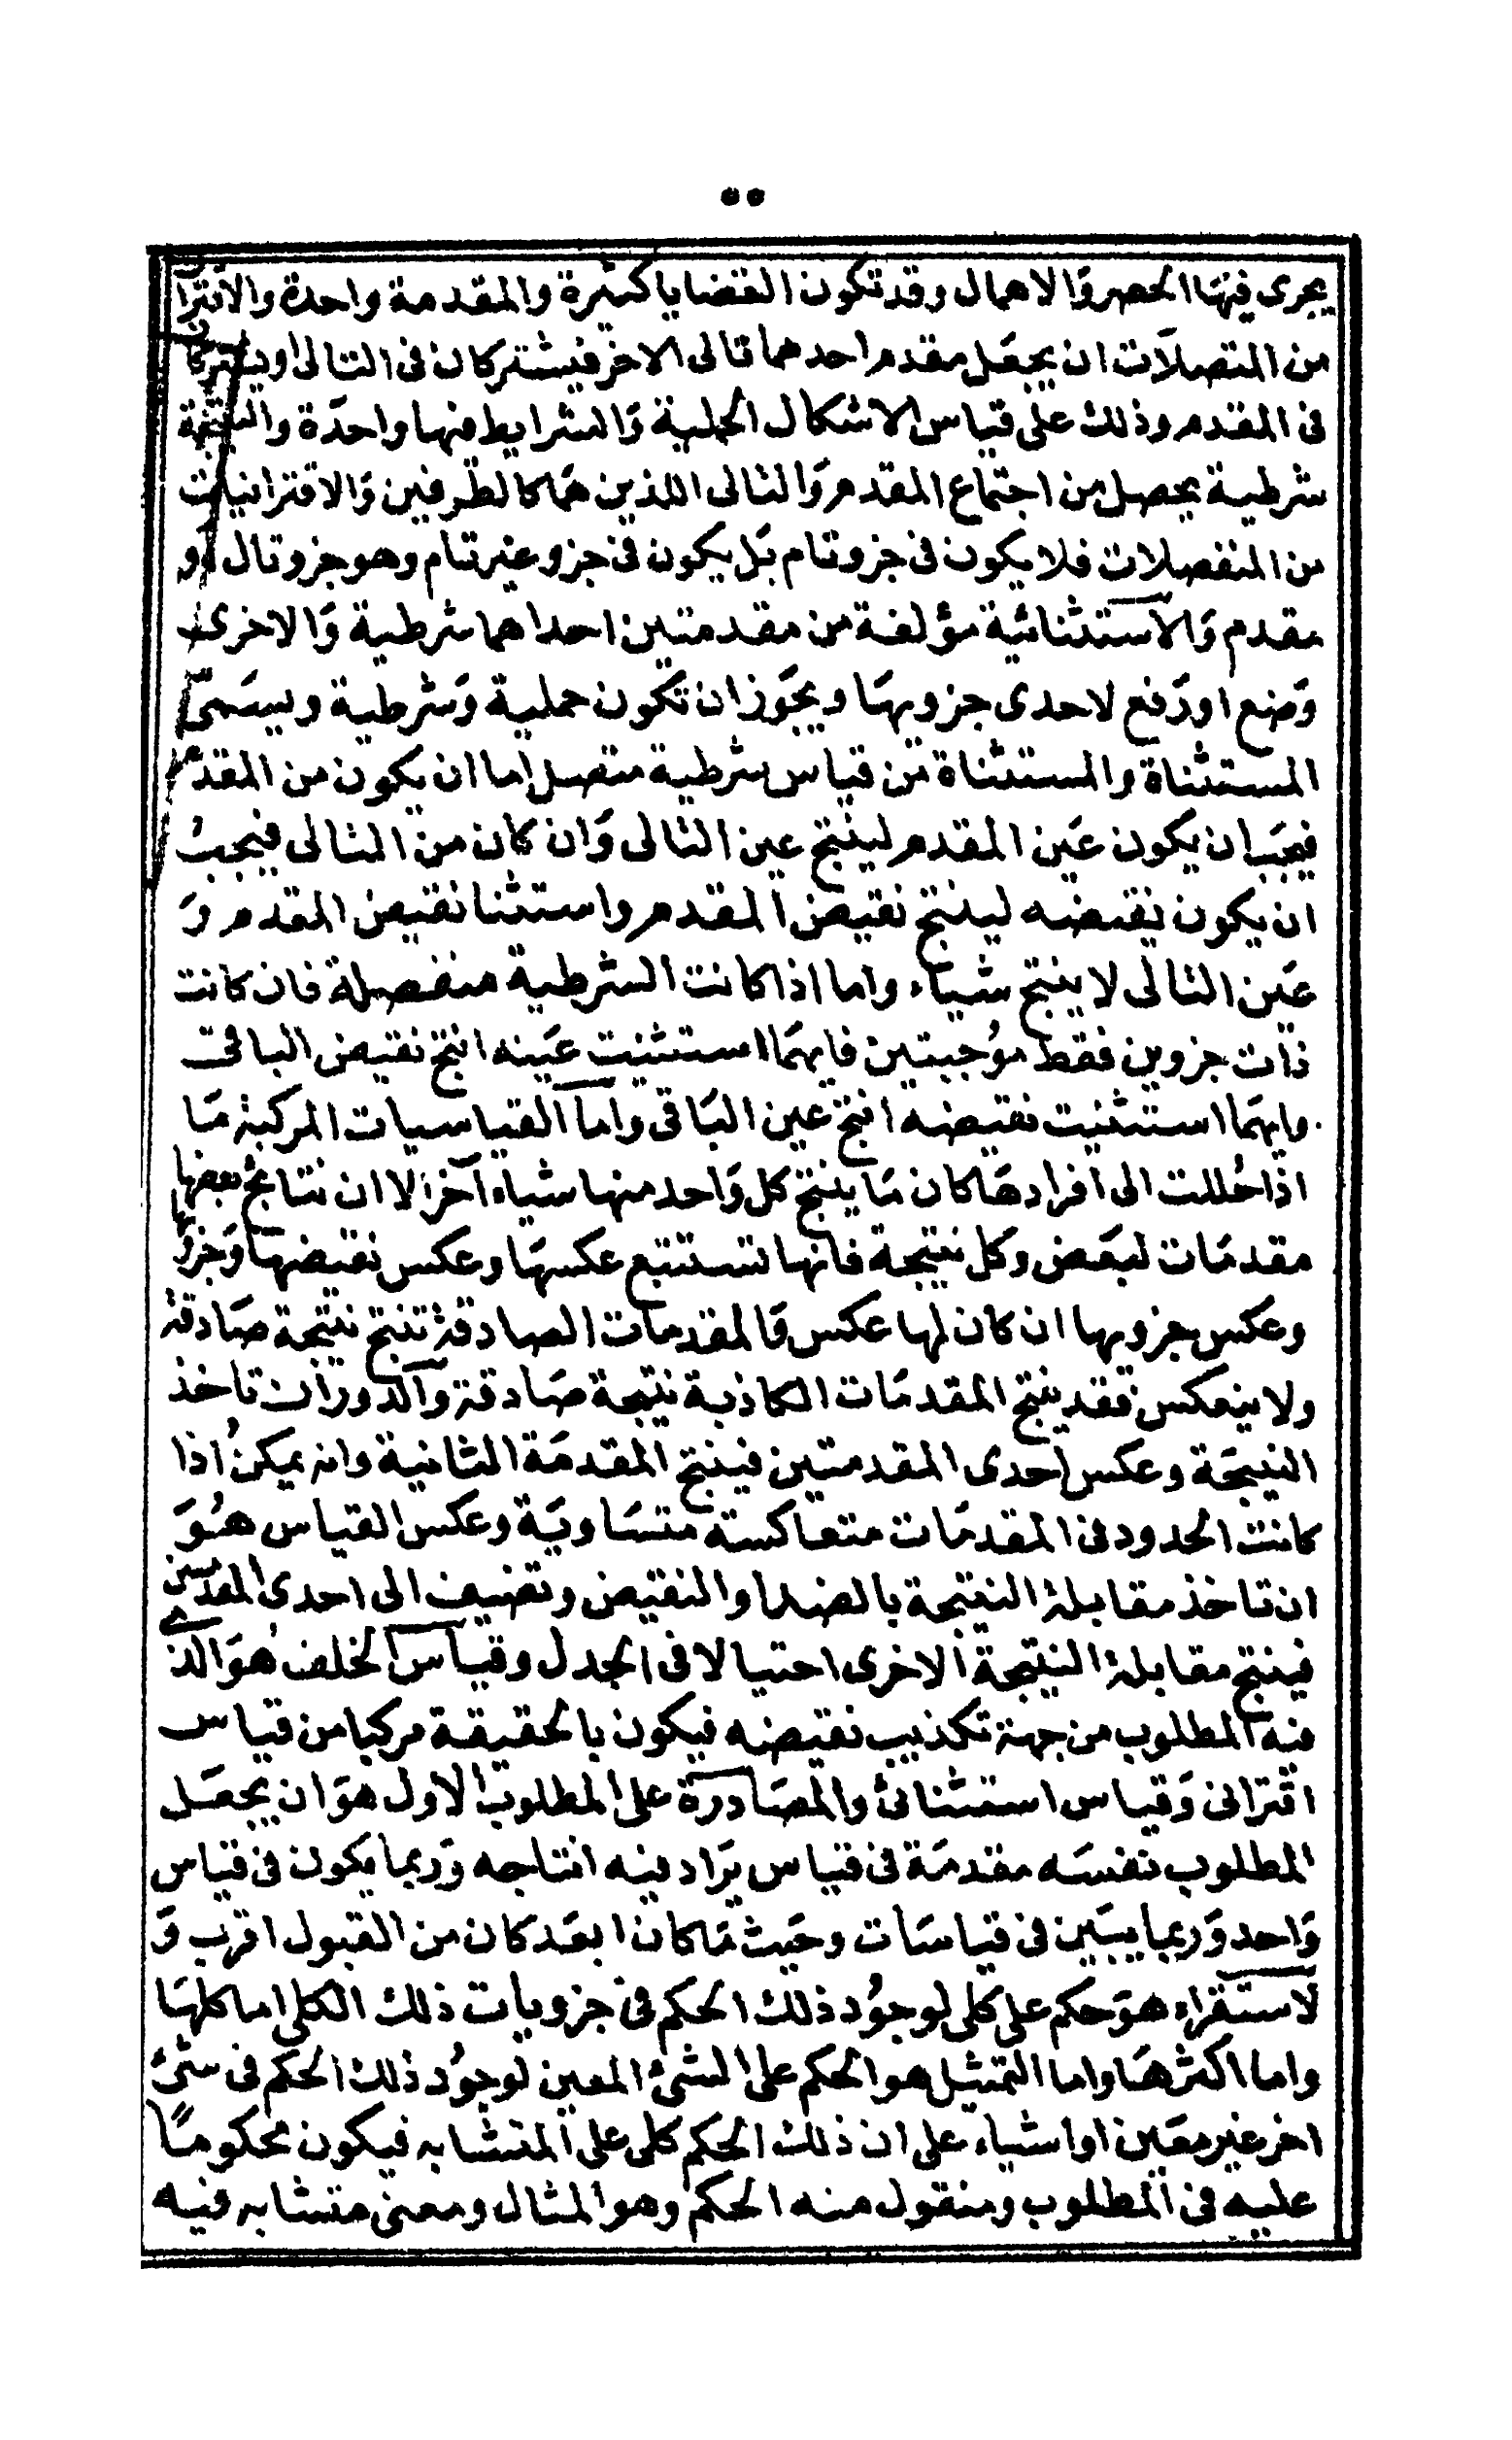 يجرى فيها الحصر والاهمال وقد تكون القضايا كثيرة والمقدمة واحدة والاقترا
من المتصلات ان يجعل مقدم احدهما تالى الاخر فيشتركان فى التالى او يشتركان
فى المقدم وذلك على قياس الاشكال الحملية وَالشرايط فيها واحدَة والنتيجة
شرطية يحصل من اجتماع المقدم وَالتالى اللذين هَما كالطرفين وَالاقترانيات
من المنفصلات فلا يكون فى جزو تام بَل يكون فى جزو غير تام وهو جزو تال او
مقدم وَالاستثنائية مؤلفة من مقدمتين احداهما شرطية وَالاخرى
وَضع او رَفع لاحدى جزويهَا ويجَوز ان تكون حملية وَشرطية ويسَمى
المستثناة والمستثناة من قياس شرطية متصل اما ان يكون من المقدم
فيجَب ان يكون عَين المقدم لينتج عين التالى وَان كان من التالى فيجبُ
ان يكون نقيضه لينتج نقيض المقدم واستثنا نقيض المقدم وَ
عَين التالى لا ينتج شياء واما اذا كانت الشرطية منفصلة فان كانت
ذات جزوين فقط موُجبتين فايهمَا استثنيت عَينه انتج نقيض الباقى
وايهمَا استثنيت نقيضه انتج عين البَاقى واما القياسيات المركبة مَا
اذا حُللت الى افرادهَا كان مَا ينتج كل وَاحد منها شياء آخر الا ان نتايج بعضها
مقدمَات لبعَض وكل نتيجة فانها تستتبع عكسهَا وعكس نقيضهَا وَجزؤها
وعكس جزويها ان كان لها عكس فالمقدمات الصادقة تنتج نتيجة صَادقة
ولا ينعكس فقد ينتج المقدمَات الكاذبة نتيجة صَادقة وَالدور ان تاخذ
النتيجَة وعكس احدى المقدمتين فينتج المقدمَة الثانية وانه يمكنُ اذا
كانت الحدود فى المقدمَات متعاكسة متسَاويَة وعكس القياس هُوَ
ان تاخذ مقابلة النتيجة بالضد او النقيض وتضيف الى احدى المقدمتين
فينتج مقابلة النتيجة الاخرى احتيالا فى الجدل وقياس الخلف هوَ الذى
فيه المطلوب من جهة تكذيب نقيضه فيكون بالحقيقة مركبا من قياس
اقترانى وَقياس استثنائى والمصَادرة على المطلوب الاول هوَ ان يجعَل
المطلوب نفسَه مقدمَة فى قياس يرَاد فيه انتاجه وَربما يكون فى قياس
وَاحد وَربما يبيَن فى قياسَات وحَيث مَا كان ابعَد كان من القبول اقرب وَ
لاستقراء هوَ حكم على كلى لوجوُد ذلك الحكم فى جزويات ذلك الكلى اما كلهَا
واما اكثرهَا واما التمثيل هو الحكم على الشئ المعين لوجوُد ذلك الحكم فى شئ
اخر غير معَين او اشياء على ان ذلك الحكم كلى على المتشابه فيكون محكومًا
عليه فى المطلوب ومنقول منه الحكم وهو المثال ومعنى متشابه فيه